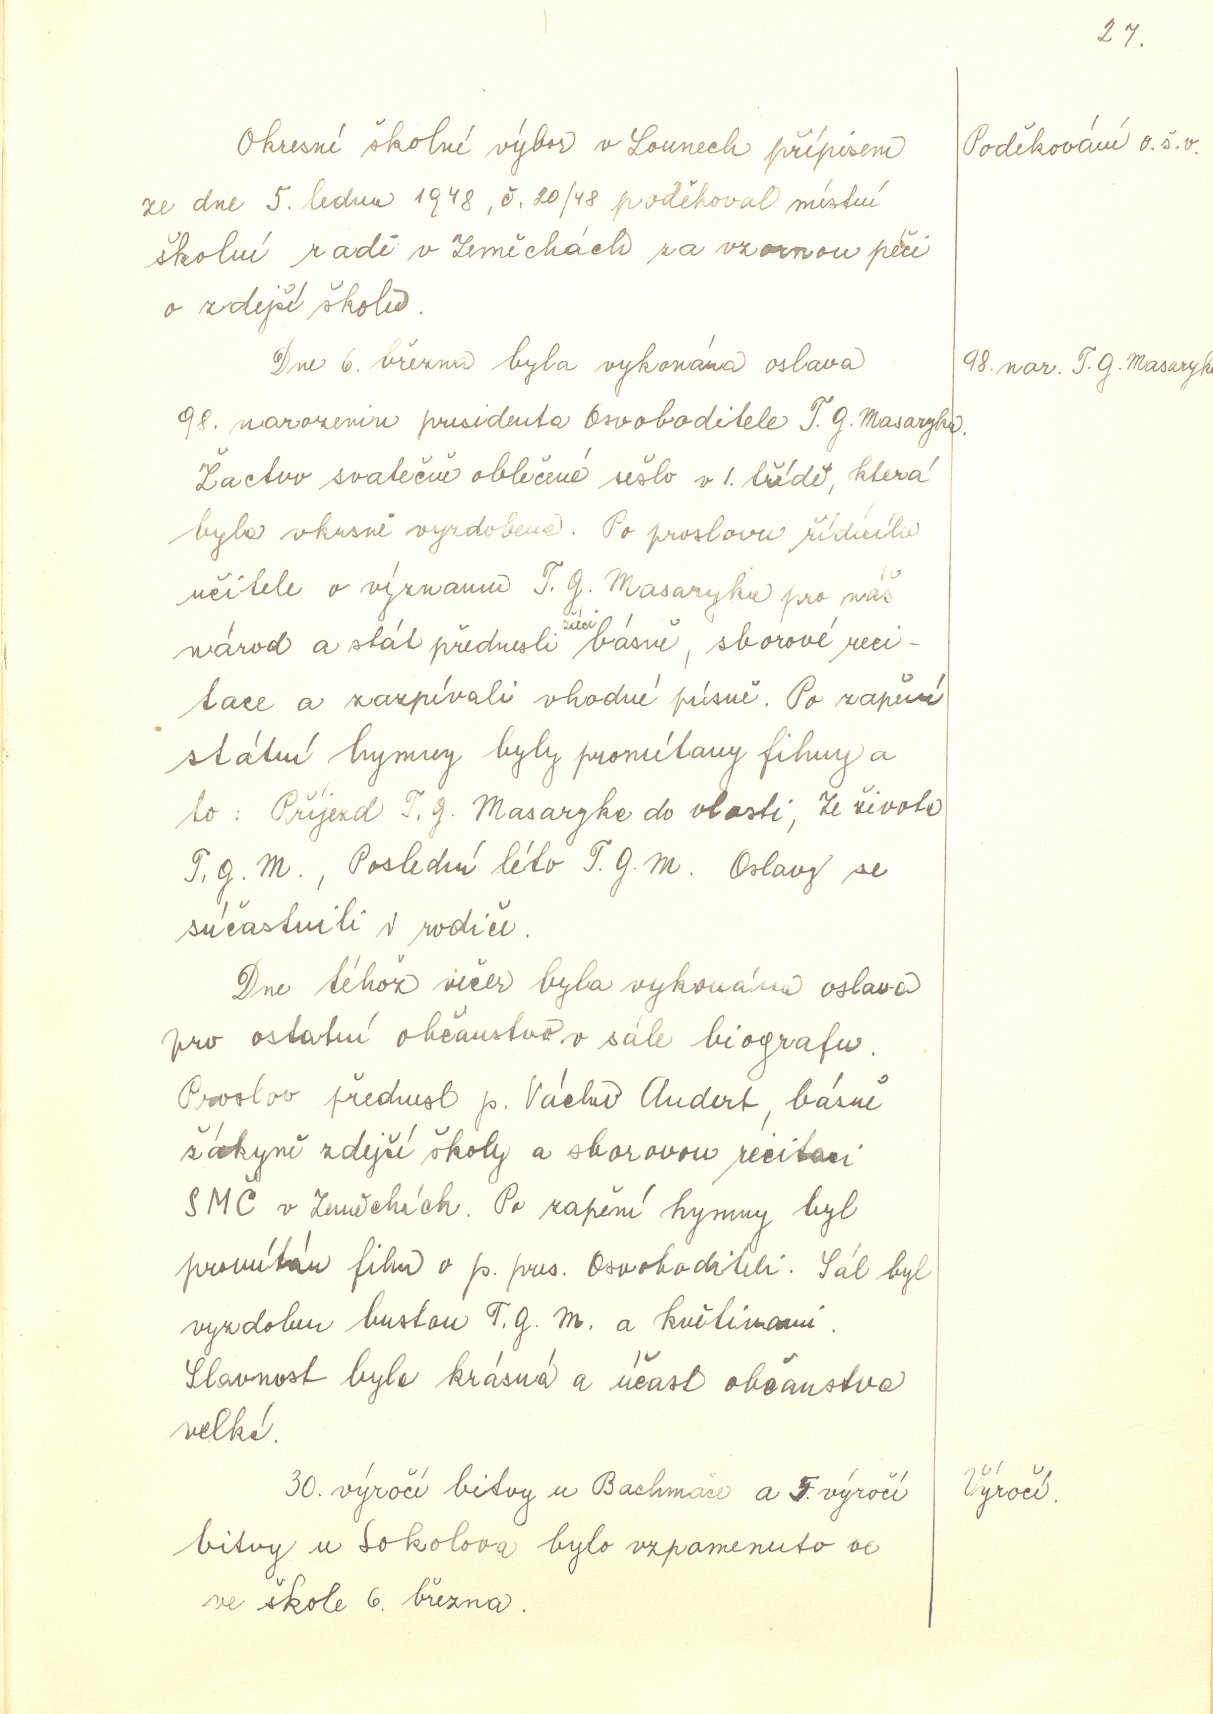 27.
Okresní školní výbor v Lounech přípisem
Poděkování o.š.v.
ze dne 5. ledna 1948, č. 20/48 poděkoval místní
školní radě v Zeměchách za vzornou péči
o zdejší školu.
Dne 6. března byla vykonána oslava
98. nar. T. G. Masaryka
98. narozenin presidenta Osvoboditele T. G. Masaryka.
Žactvo svátečně oblečené sešlo v 1. třídě, která
byla vkusně vyzdobena. Po proslovu řídícího
učitele o významu T. G. Masaryka pro náš
národ a stát přednesli žáci básně, sborové reci-
tace a zazpívali vhodné písně. Po zapění
státní hymny byly promítany filmy a
to: Příjezd T. G. Masaryka do vlasti, Ze života
T. G. M., Poslední léto T. G. M. Oslavy se
súčastnili i rodiče.
Dne téhož večer byla vykonána oslava
pro ostatní občanstvo v sále biografu.
Proslov přednesl p. Václav Andert, básně
žákyně zdejší školy a sborovou recitaci
SMČ v Zeměchách. Po zapění hymny byl
promítán film o p. pres. Osvoboditeli. Sál byl
vyzdoben bustou T. G. M. a květinami.
Slavnost byla krásná a účast občanstva
velká.
30. výročí bitvy u Bachmače a 5. výročí
Výročí.
bitvy u Sokolova bylo vzpomenuto ve
ve škole 6. března.